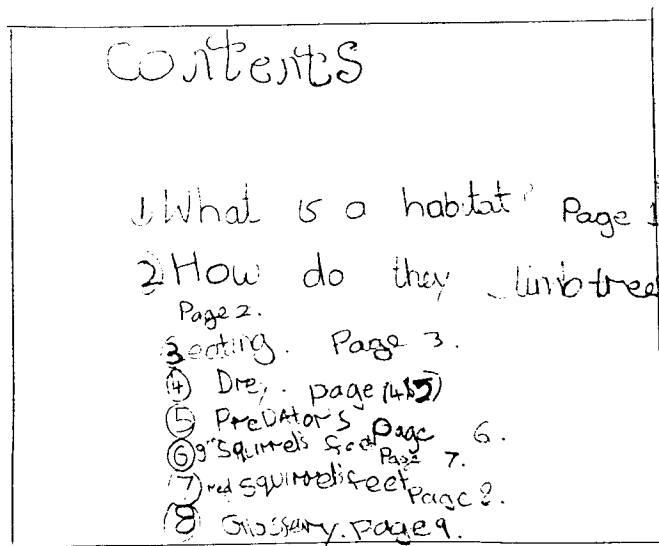 Contents
1 What is a habitat? Page 1
2 How do they climb tree
Page 2.
3 eating. Page 3.
4 Drey. page (4 5)
5 PreDAtors Page 6.
6 squirrels feet Page 7.
7 red squirrels feet Page 8.
8 Glossary. page 9.